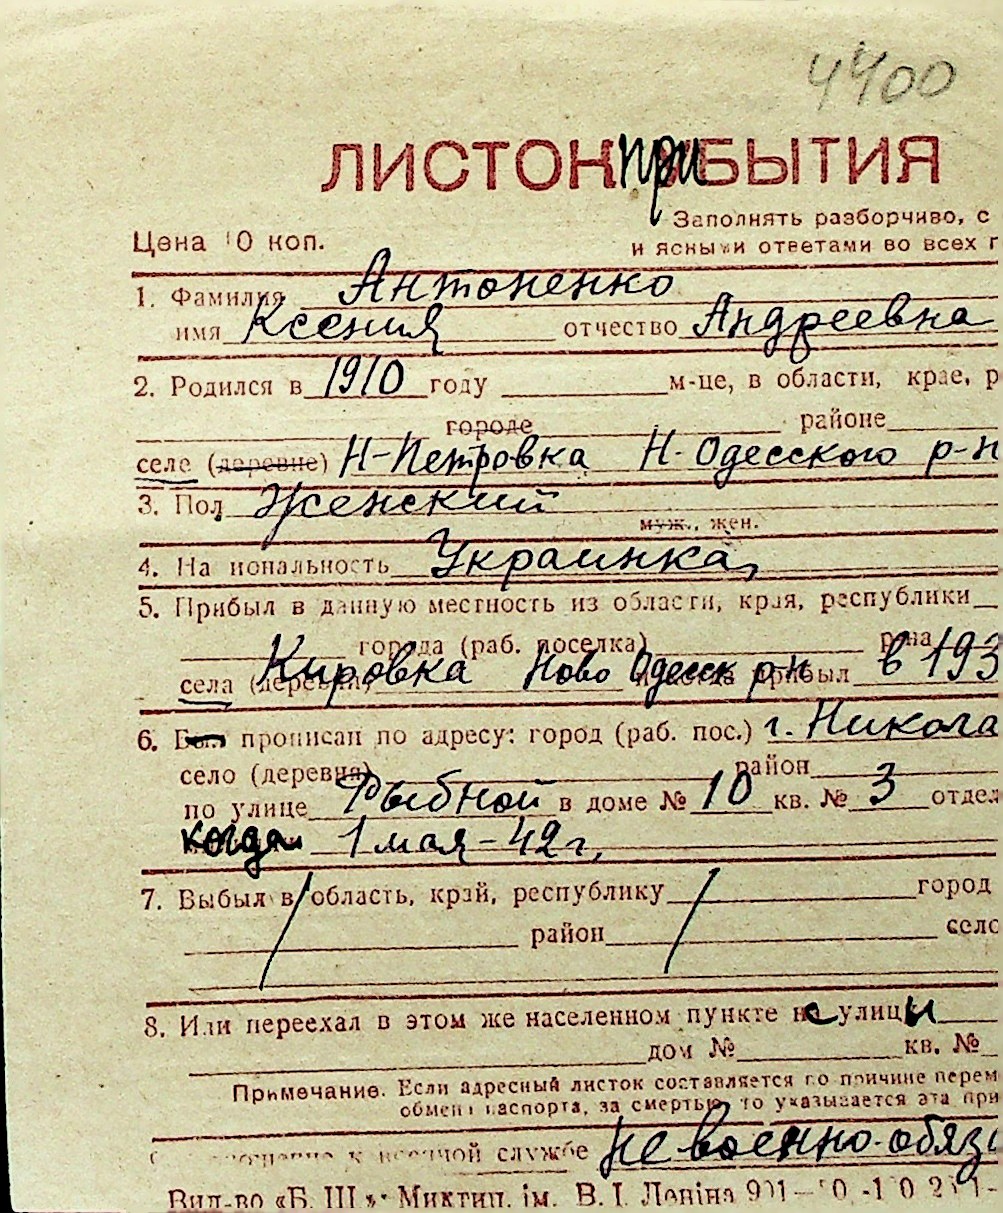 4400
ЛИСТОК ПРИБЫТИЯ
Заполнять разборчиво, с
Цена 10 коп.
и ясными ответами во всех г
1. Фамилия Антоненко
имя Ксения отчество Андреевна
2. Родился в 1910 году м-це, в области, крае, р
городе районе
селе (деревне) Н-Петровка Н-Одесского р-н
3. Пол Женский
муж., жен.
4. Национальность Украинка
5. Прибыл в данную местность из области, края, республики
города (раб. поселка) р-на
села (деревни) Кировка Ново Одесск р-н прибыл в 193
6. Был прописан по адресу: город (раб. пос.) г. Никола
село (деревня) район
по улице Рыбной в доме № 10 кв. № 3 отдел
когда 1 мая-42 г.
7. Выбыл в область, край, республику город
район село
8. Или переехал в этом же населенном пункте с улицы
дом № кв. №
Примечание. Если адресный листок составляется по причине перем
обмена паспорта, за смертью, то указывается эта при
к военной службе Не военно-обяз
Вид-во «Б. Ш.» Миктип. ім. В. І. Леніна